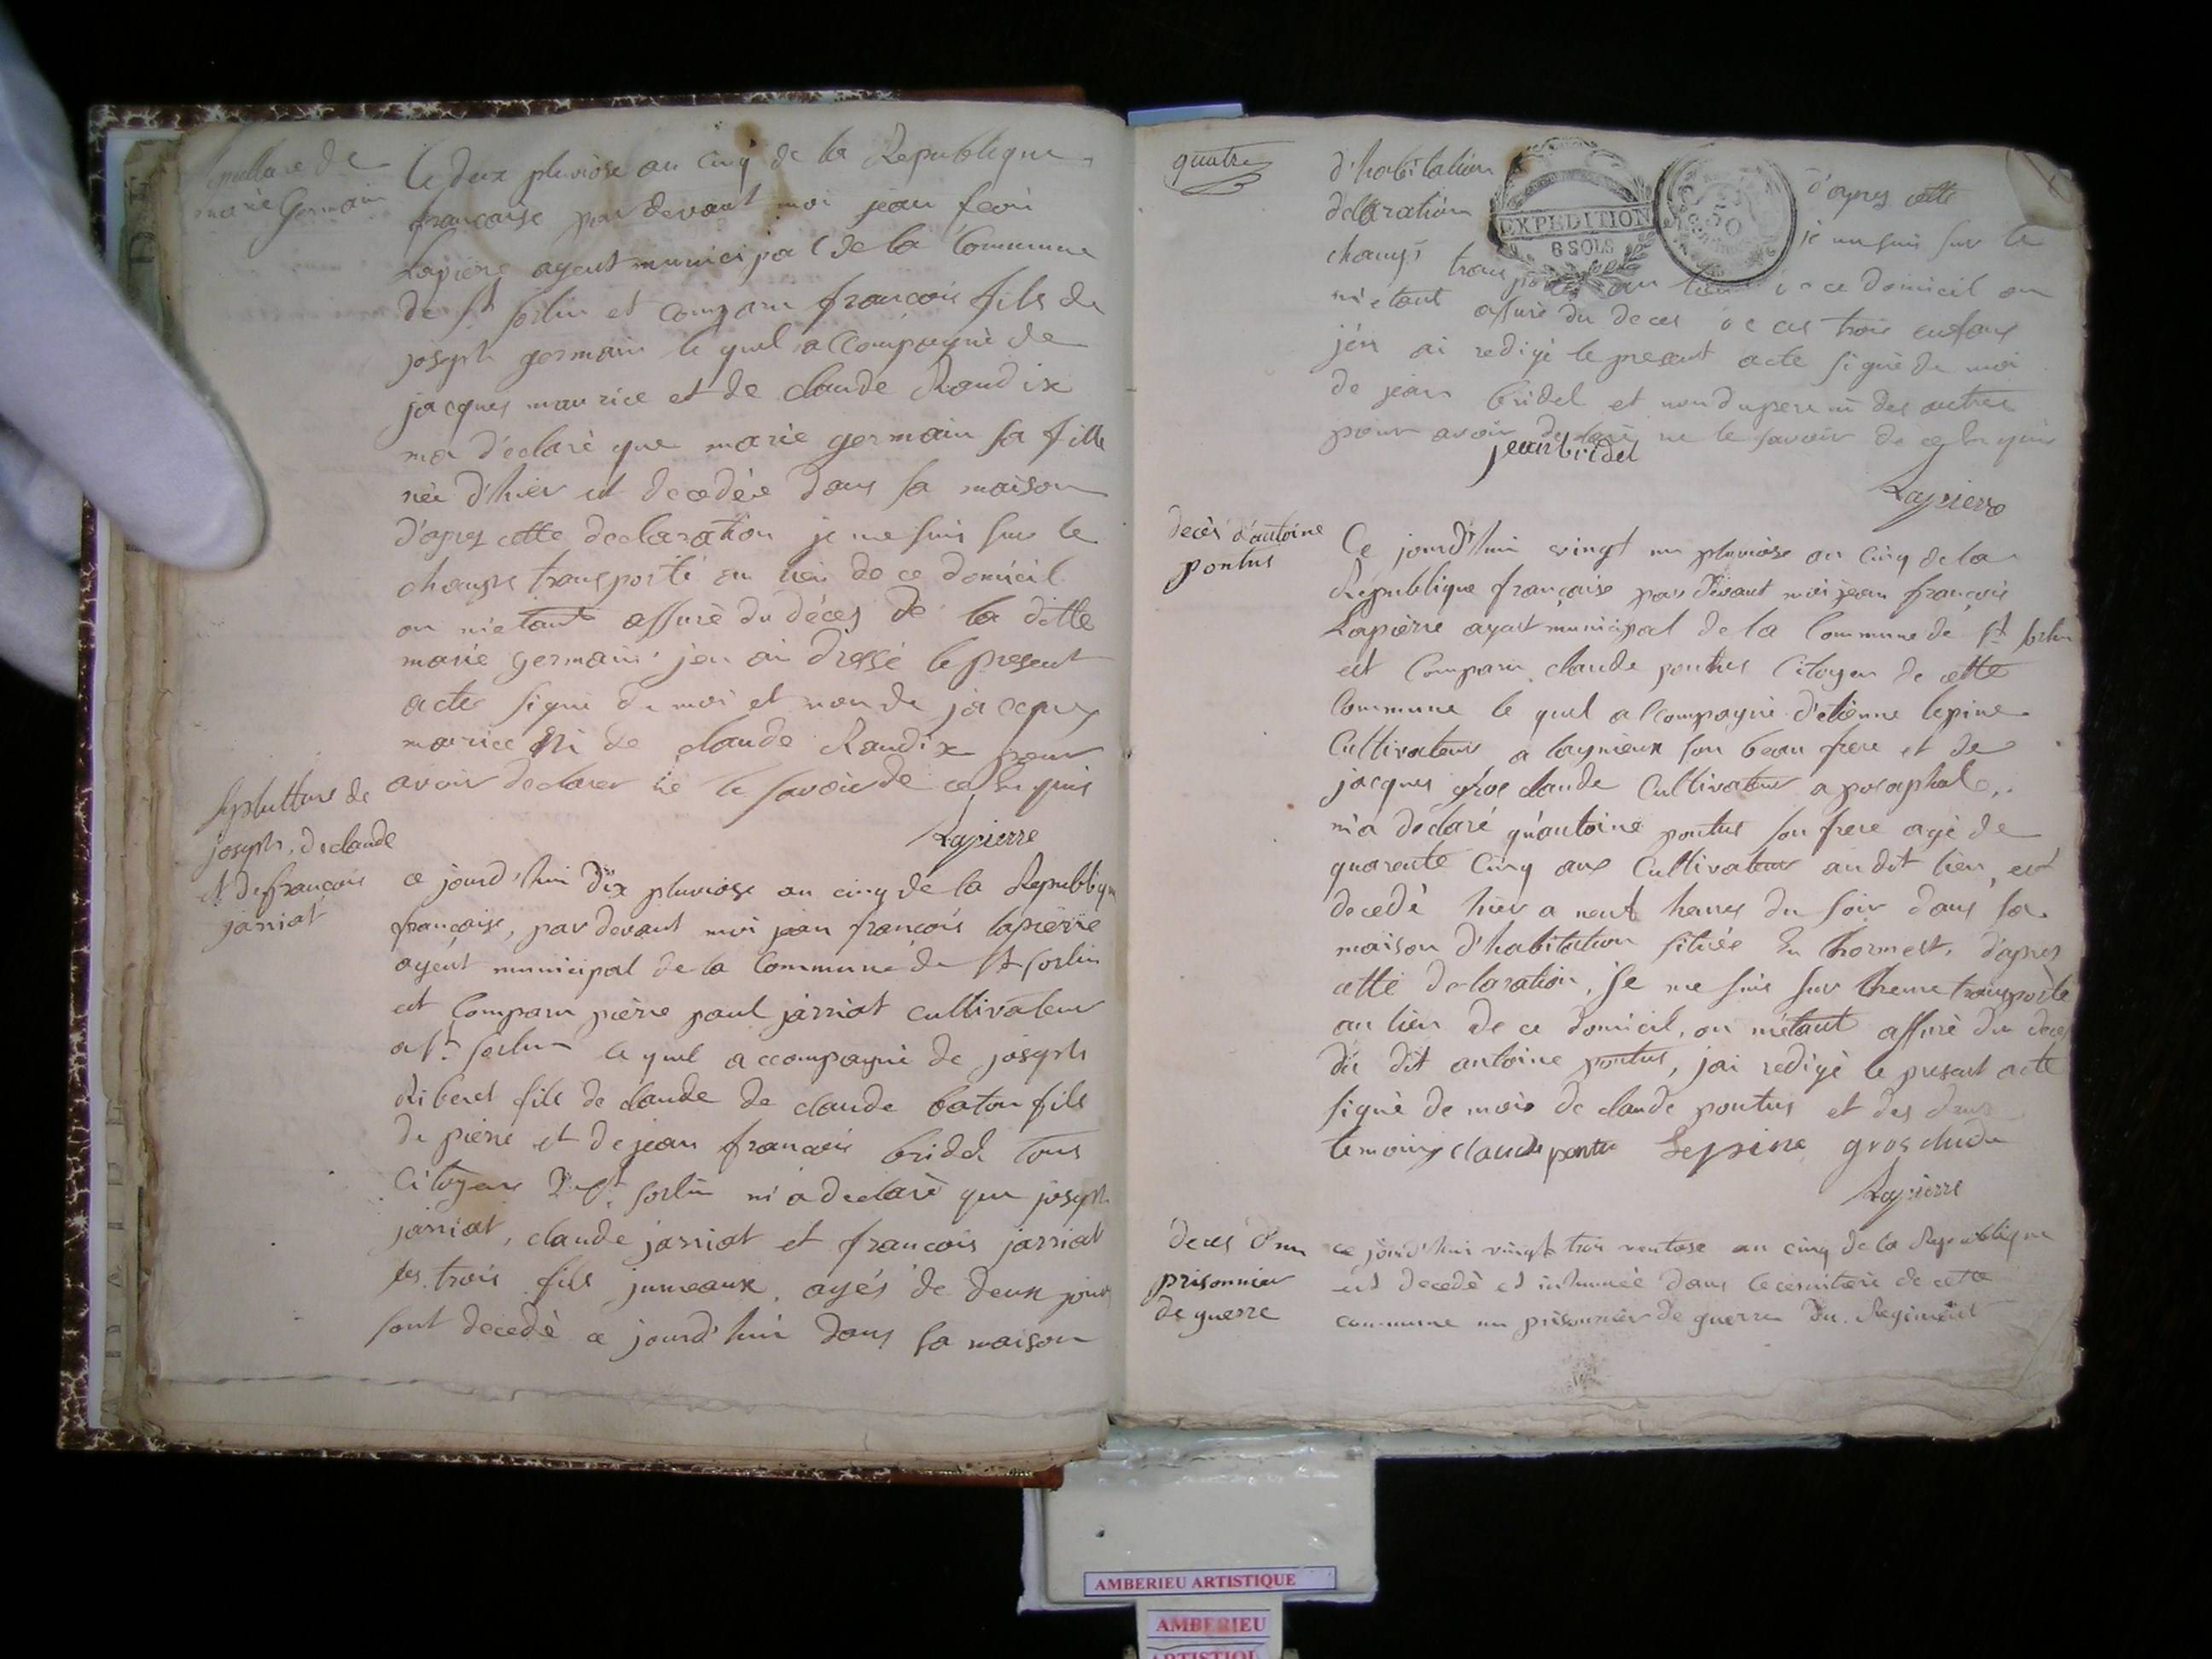 sepulture de
marie Germain
le deux pluviose an cinq de la Republique
francaise par devant moi jean fcois
Lapierre agent municipal de la Commune
de St Sorlin et comparu francois fils de
joseph germain le quel accompagné de
jacques maurice et de claude Randix
ma déclaré que marie germain sa fille
née d'hier est decedée dans sa maison
d'apres cette declaration je me suis sur le
champs transporté au lieu de ce domicil
ou m'etant assuré du décès de la ditte
marie germain jen ai dressé le present
acte signé de moi et non de jacques
maurice ni de claude Randix pour
avoir declarer ne le savoir de ce enquis
Lapierre
sepultture de
joseph, de claude
et de francois
jarriat
ce jourd'hui dix pluviose an cinq de la Republique
francaise, par devant moi jean francois lapierre
agent municipal de la Commune de St Sorlin
est Comparu pierre paul jarriat cultivateur
a St sorlin le quel accompagné de joseph
Riberet fils de claude de claude baton fils
de pierre et de jean francois bridel tous
Citoyens de St sorlin m'a declaré que joseph
jarriat, claude jarriat et francois jarriat
ses trois fils jumeaux, agés de deux jours
sont decedé ce jourd'hui dans sa maison
quatre
d'habitation
EXPEDITION
6 SOLS
d'apres cette
declaration je me suis sur le
champs transporté au lieu de ce domicil ou
m'etant assuré du deces de ces trois enfans
j'en ai redigé le present acte signé de moi
de jean bridel et non du pere ni des autres
pour avoir declaré ne le savoir de ce enquis
jean bridel
Lapierre
decès d'antoine
pontus
Ce jourd'hui vingt un pluviose an cinq de la
Republique française par devant moi jean francois
Lapierre agent municipal de la Commune de St sorlin
est Comparu claude pontus Citoyen de cette
Commune le quel accompagné d'etienne lepine
Cultivateur a lagnieux son beau frere et de
jacques gros claude Cultivateur a posaphale,
m'a déclaré qu'antoine pontus son frere agé de
quarente Cinq ans Cultivateur au dit lieu, est
decedé hier a neuf heures du soir dans sa
maison d'habitation située en hormest, d'apres
cette declaration, je me suis sur lheure transporté
au lieu de ce domicil, ou m'étant assuré du deces
du dit antoine pontus, jai redigé le present acte
signé de moi de claude pontus et des deux
temoins claude pontus Lepine gros clude
Lapierre
deces d'un
prisonnier
de guerre
ce jourd'hui vingt trois ventose an cinq de la Republique
est decedé et inhumée dans le cemitiere de cette
commune un prisonnier de guerre du Regiment
AMBERIEU ARTISTIQUE
AMBERIEU
ARTISTIQU